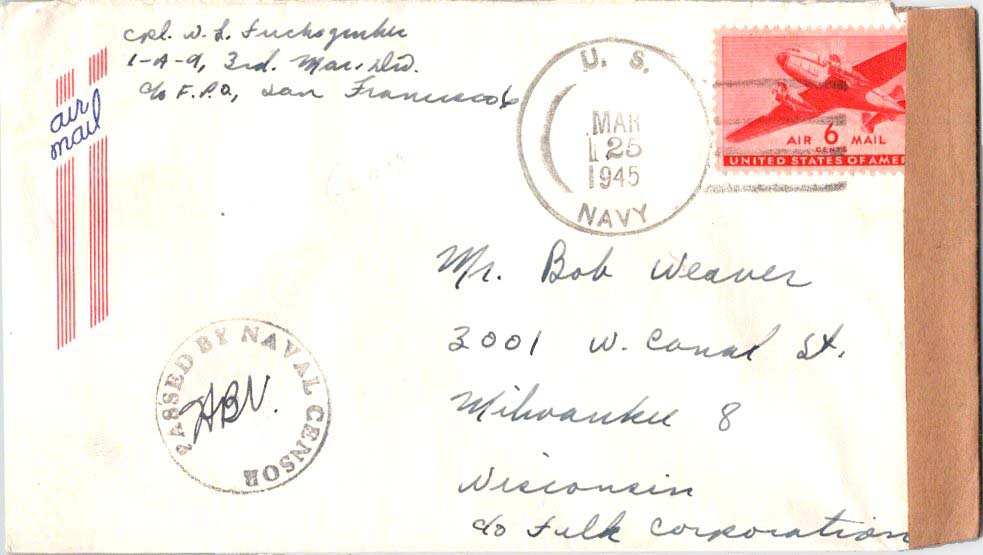 Cpl. W. L.
1-A-9, 3rd. Mar. Div.
c/o F.P.O, San Francisco
air
mail
U. S.
MAR
25
1945
NAVY
AIR 6 MAIL
CENTS
UNITED STATES OF AMER
Mr. Bob Weaver
3001 W. Canal St.
Milwaukee 8
Wisconsin
c/o Falk Corporation
PASSED BY NAVAL CENSOR
HBV.